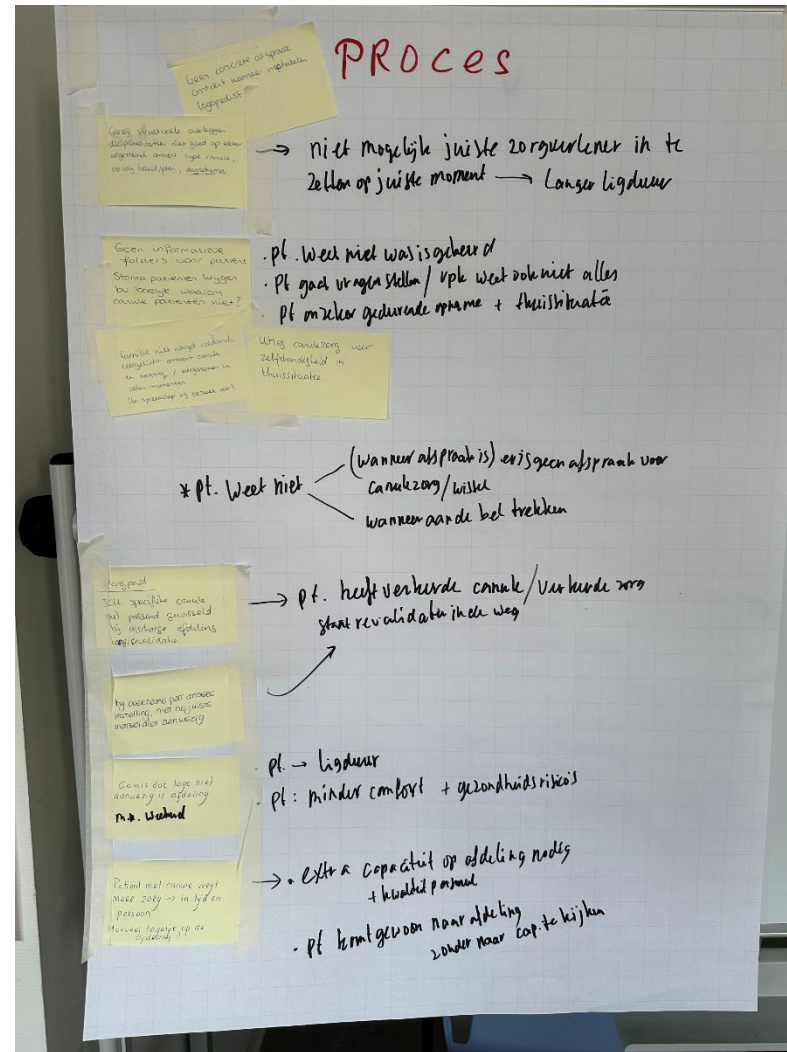 PROCES
Geen concrete afspraak
omtrent wanneer inschakelen
logopedist
Geen structurele overleggen
disciplines/artsen niet goed op elkaar
afgestemd omtrent type canule,
beleid/plan,
→ niet mogelijk juiste zorgverlener in te
zetten op juiste moment → Langer ligduur
Geen informatieve
folders voor patient
Stoma patienten krijgen
bv boekje waarom
canule patienten niet?
· pt. weet niet was is gebeurd
· Pt gaat vragen stellen / vpk weet ook niet alles
· Pt onzeker gedurende opname + thuissituatie
Familie niet altijd voldoende
voorgelicht omtrent canule
en / meegenomen in
momenten
Uitleg canulezorg voor
zelfstandigheid in
thuissituatie
* pt. weet niet
(wanneer afspraak is) er is geen afspraak voor
canulezorg/wissel
wanneer aan de bel trekken
Zorgpad
ICU specifieke canule
niet passend gewisseld
bij discharge afdeling
→ pt. heeft verkeerde canule / verkeerde zorg
staat revalidatie in de weg
bij overname pat. andere
instelling, niet de juiste
materialen aanwezig
Gemis dat logo niet
aanwezig is afdeling
m.n. weekend
pt. → ligduur
· pt : minder comfort + gezondheidsrisico's
Patient met canule vergt
meer zorg → in tijd en
persoon
tegelijk op de
afdeling
→ · extra capaciteit op afdeling nodig
+ kwaliteit personeel
· pt komt gewoon naar afdeling
zonder naar cap. te kijken